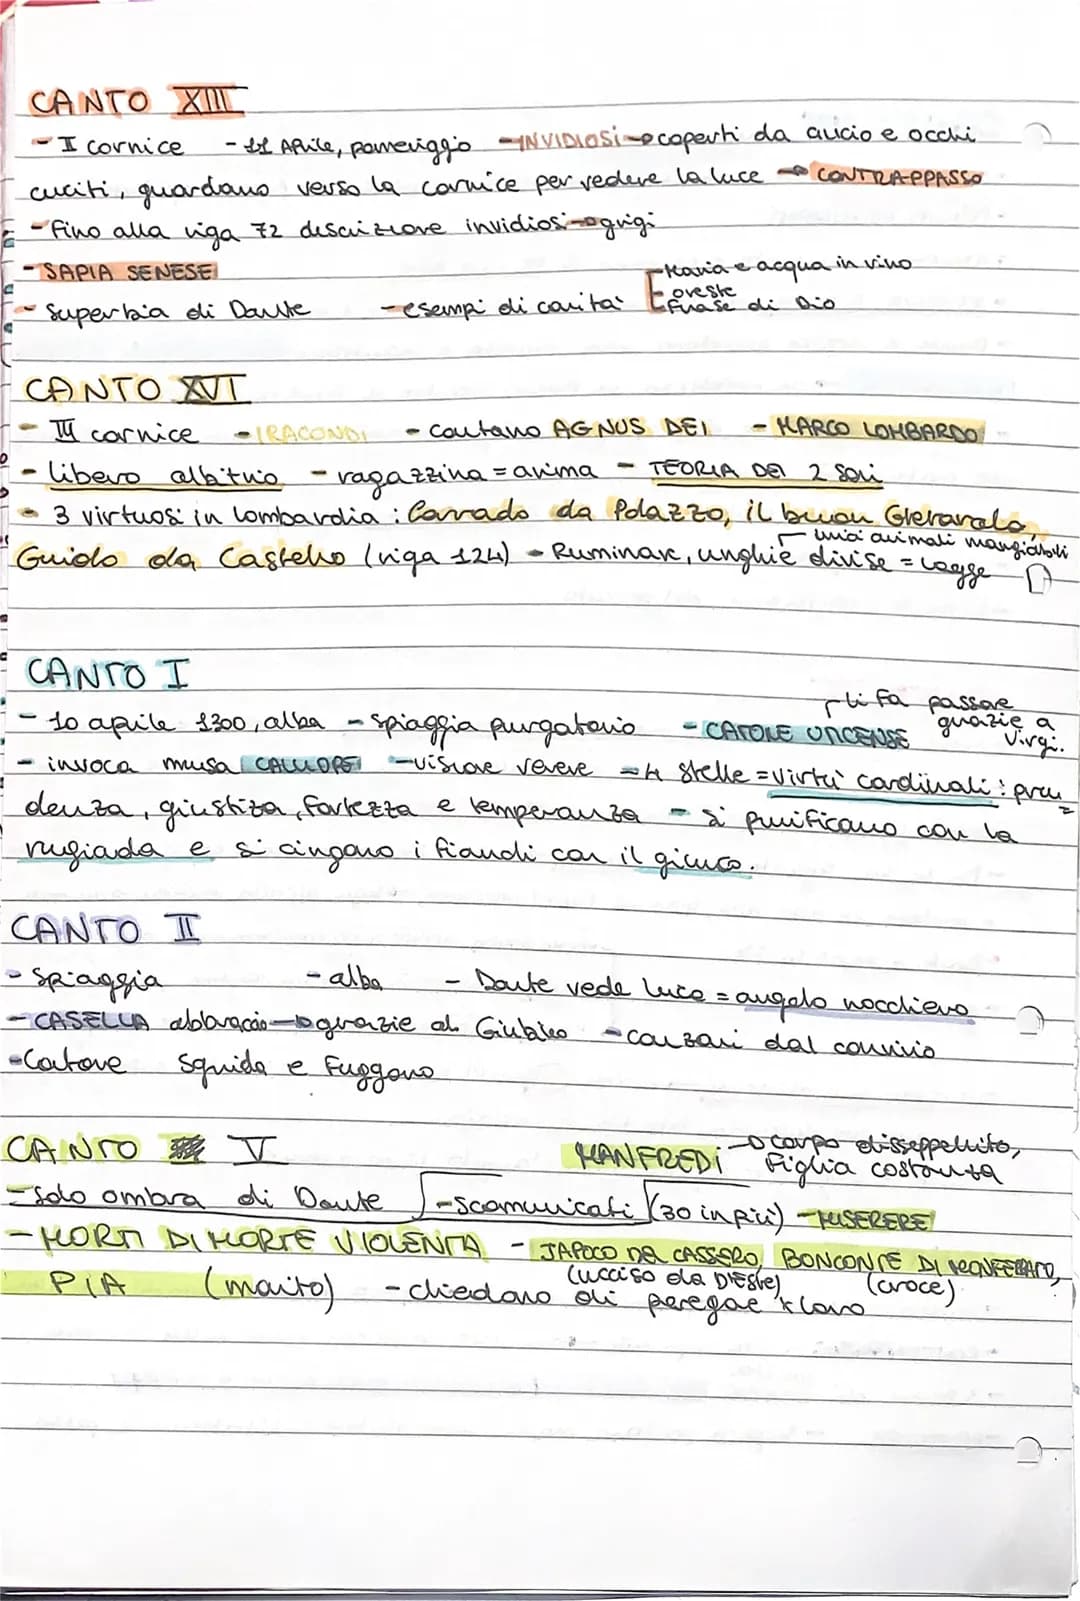 CANTO XIII
- II cornice - 11 Aprile, pomeriggio - INVIDIOSI → coperti da cilicio e occhi
cuciti, guardano verso la cornice per vedere la luce → CONTRAPPASSO
- fino alla riga 72 descrizione invidiosi → grigi
- SAPIA SENESE
- Maria e acqua in vino
- Superbia di Dante - esempi di carità - oreste
- Frase di Dio
CANTO XVI
- III cornice - IRACONDI - cantano AGNUS DEI - MARCO LOMBARDO
- libero arbitrio - ragazzina = anima - TEORIA DEI 2 Soli
- 3 virtuosi in Lombardia: Corrado da Palazzo, il buon Gherardo,
Guido da Castello (riga 124) - Ruminare, unghie divise = Legge
unici animali mangiabili
CANTO I
- 10 aprile 1300, alba - spiaggia purgatorio - CATONE UTICENSE
li fa passare grazie a Virgi.
- invoca musa CALLIOPE - visione venere - 4 stelle = virtù cardinali: pru=
denza, giustizia, fortezza e temperanza - si purificano con la
rugiada e si cingono i fianchi con il giunco.
CANTO II
- Spiaggia - alba - Dante vede luce = angelo nocchiero
- CASELLA abbraccio → grazie al Giubileo - canzoni dal convivio
- Catone sgrida e fuggono
CANTO V MANFREDI → corpo disseppellito,
figlia costanza
- Solo ombra di Dante - scomunicati (30 in più) - MISERERE
- MORTI DI MORTE VIOLENTA - JAPOCO DEL CASSERO, BONCONTE DI MONFELTRO,
(ucciso da D'Este) (croce)
PIA (marito) - chiedono di pregae x loro